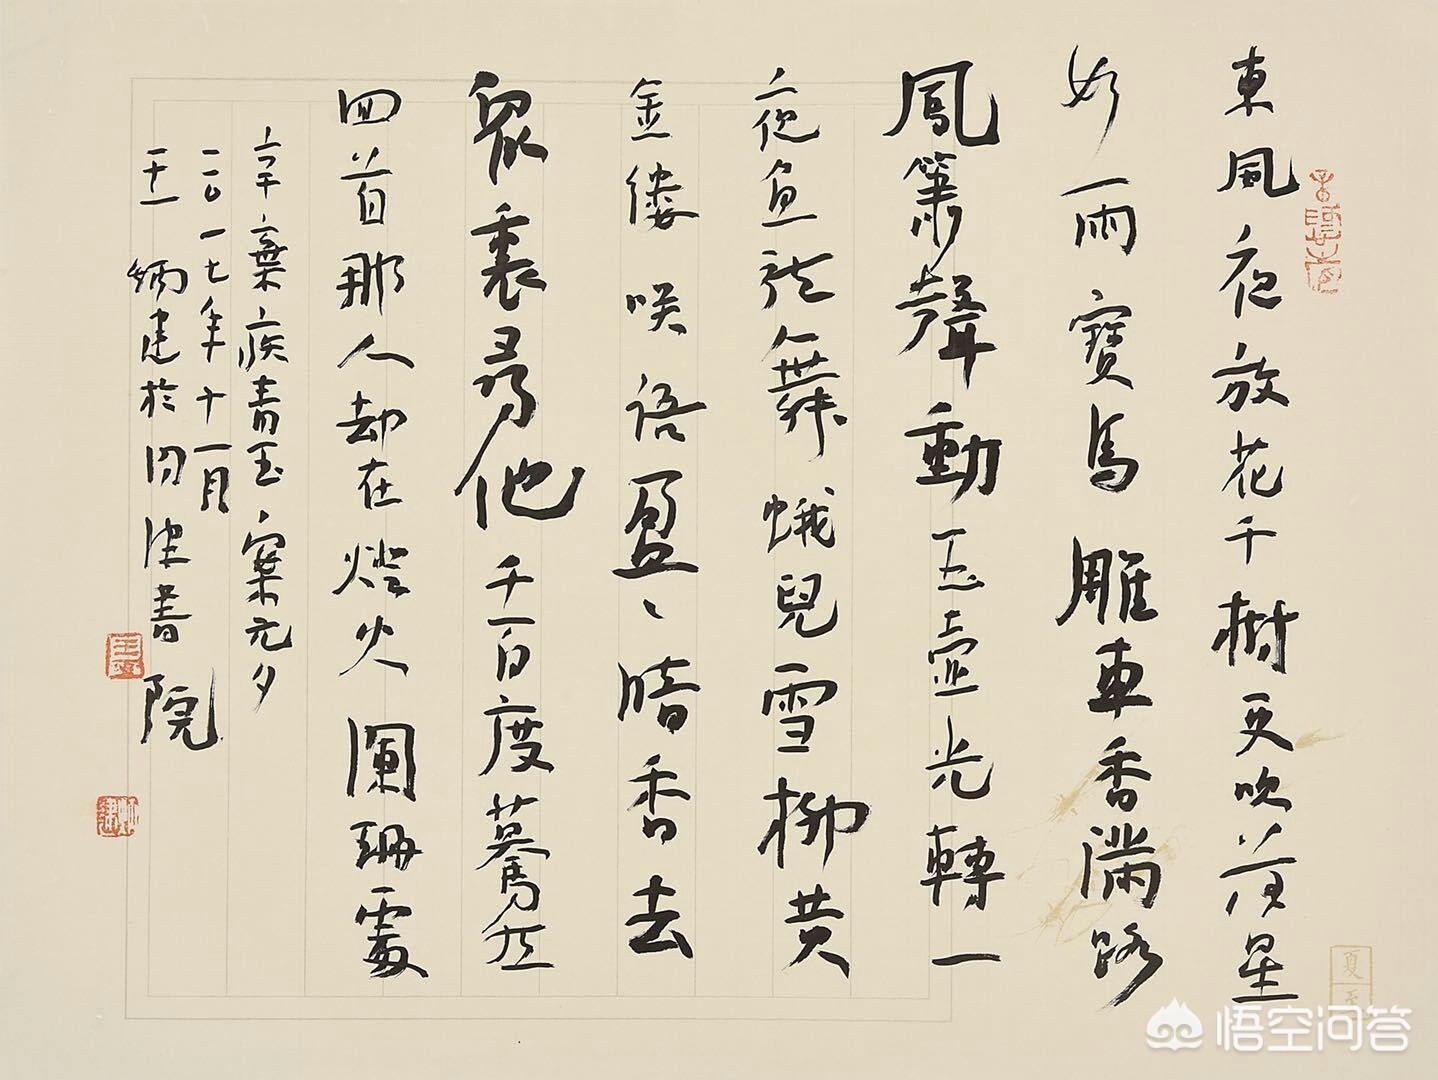 東風夜放花千樹更吹落星
如雨寶馬雕車香滿路
鳳簫聲動玉壺光轉一
夜魚龍舞蛾兒雪柳黃
金缕咲語盈〻暗香去
衆裏尋他千百度驀然
回首那人却在燈火闌珊處
辛棄疾青玉案元夕
二〇一七年十一月
二十一炳建於問津書院
夏至
悟空问答